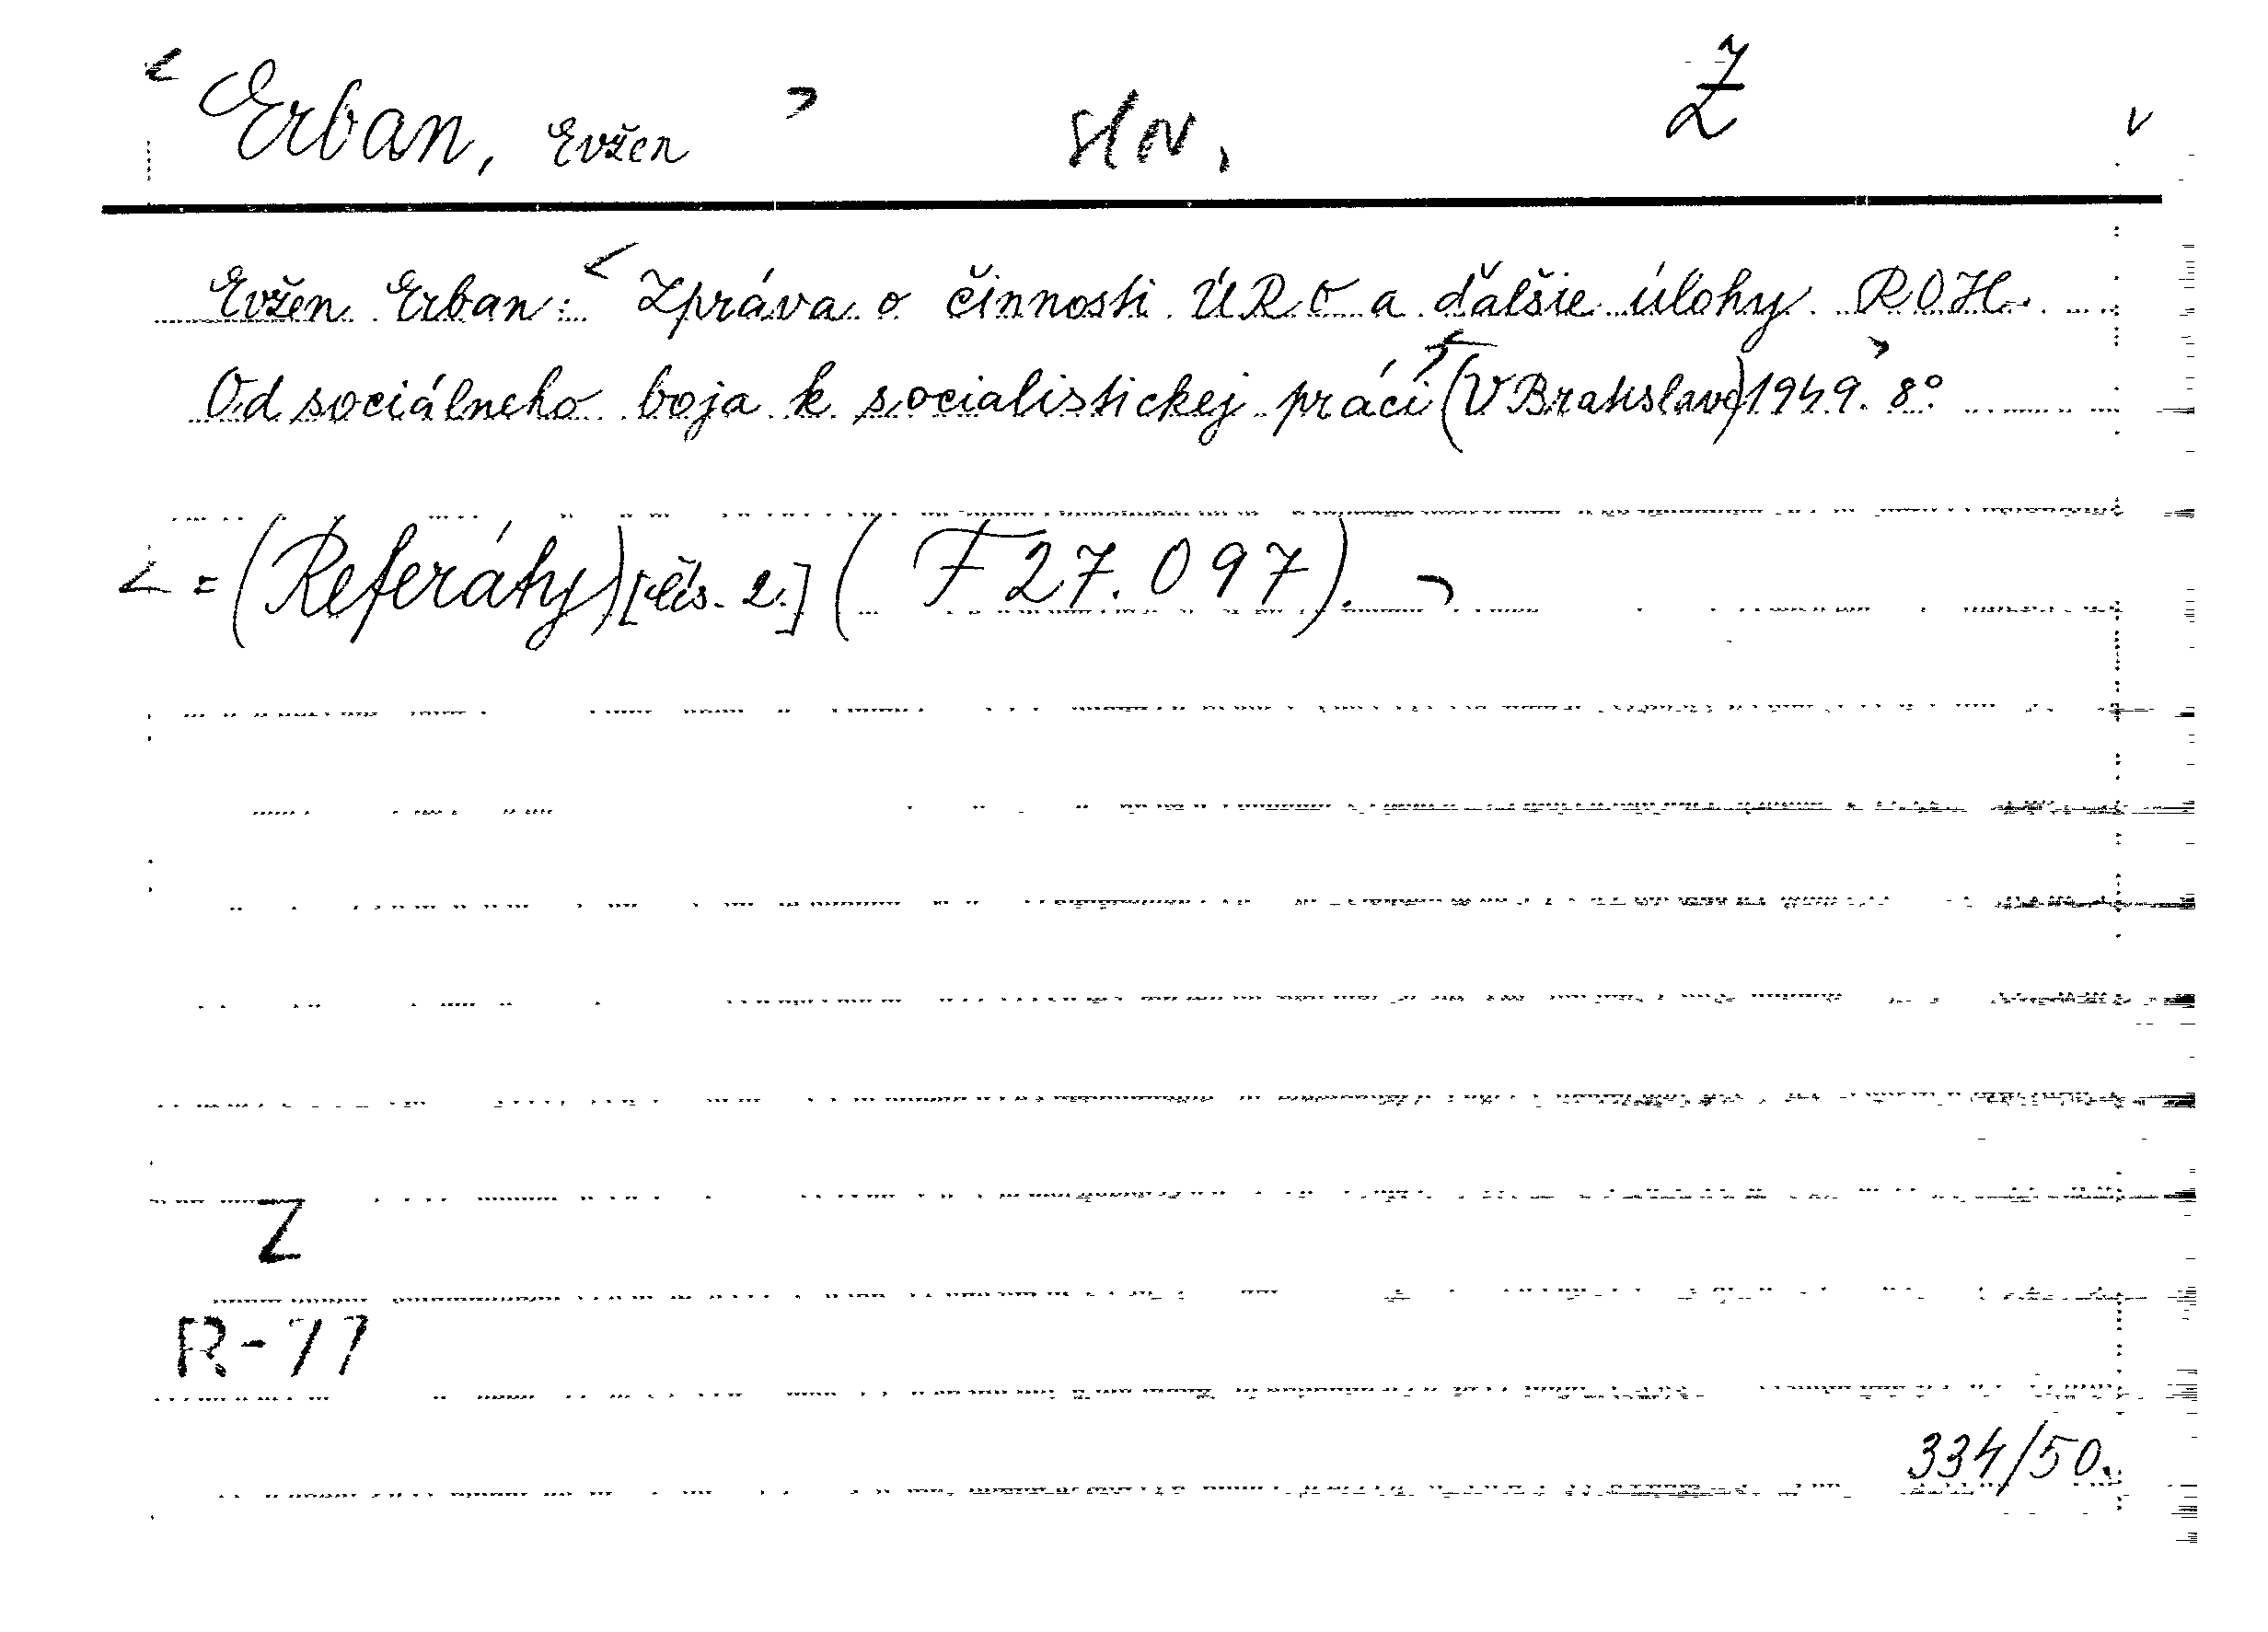 < Erban, Evžen > slov. Ž v
Evžen Erban: < Zpráva o činnosti ÚRO a ďalšie úlohy ROH.
Od sociálneho boja k socialistickej práci > < (V Bratislave) 1949. > 8°
< = (Referáty) [čís. 2.] ( F 27.097). >
Z
R-77
334/50.